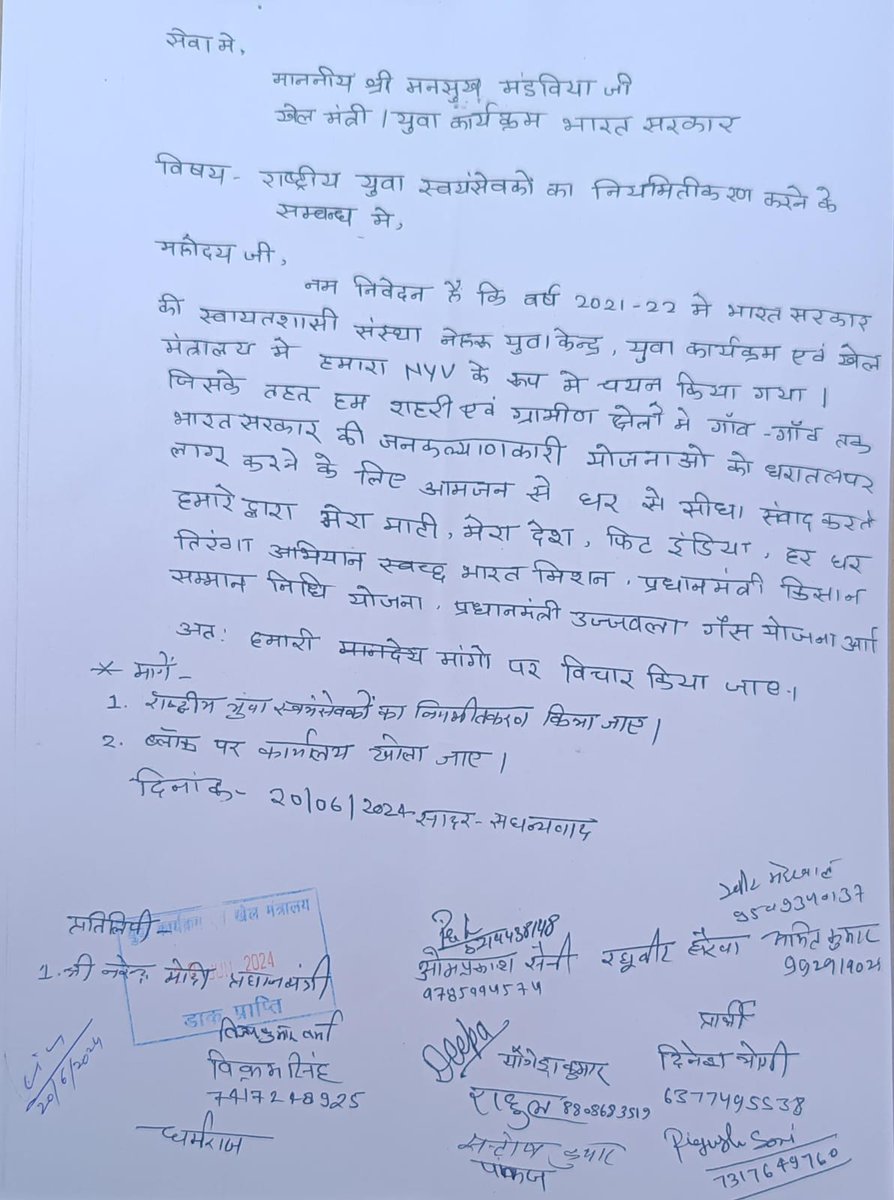 सेवा मे,
माननीय श्री मनसुख मंडविया जी
खेल मंत्री / युवा कार्यक्रम भारत सरकार
विषय - राष्ट्रीय युवा स्वयंसेवकों का नियमितीकरण करने के
सम्बन्ध मे,
महोदय जी,
नम निवेदन है कि वर्ष 2021-22 मे भारत सरकार
की स्वायतशासी संस्था नेहरू युवा केन्द्र, युवा कार्यक्रम एवं खेल
मंत्रालय मे हमारा NYV के रूप मे चयन किया गया।
जिसके तहत हम शहरी एवं ग्रामीण क्षेत्रों मे गाँव-गाँव तक
भारत सरकार की जनकल्याणकारी योजनाओ को धरातल पर
लागू करने के लिए आमजन से घर से सीधा संवाद करते
हमारे द्वारा मेरा माटी, मेरा देश, फिट इंडिया, हर घर
तिरंगा अभियान स्वच्छ भारत मिशन, प्रधानमंत्री किसान
सम्मान निधि योजना, प्रधानमंत्री उज्जवला गैस योजना
अत: हमारी मानदेय मांगो पर विचार किया जाए।
* मागें -
1. राष्ट्रीय युवा स्वयंसेवकों का नियमीतकरण किया जाए।
2. ब्लॉक पर कार्यालय खोला जाए।
दिनांक - 20/06/2024 सादर - सधन्यवाद
9549340137
प्रतिलिपी - कार्यक्रम खेल मंत्रालय
ओमप्रकाश सैनी रघुवीर अमित कुमार
9785994574
1. श्री नरेन्द्र मोदी प्रधानमंत्री
2024
डाक प्राप्ति
प्रार्थी
Deepa
विक्रम सिंह
7417248925
20/6/2024
योगेश कुमार
दिनेश
राहुल 8808683519
6377495538
धर्मराज
संतोष कुमार
Piyush Soni
पंकज
7317649760